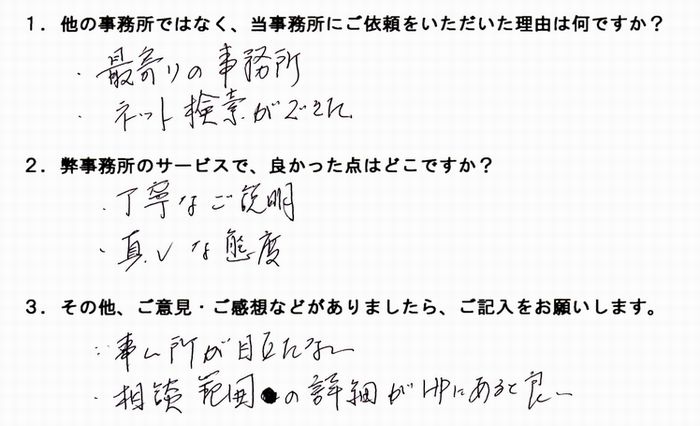 1．他の事務所ではなく、当事務所にご依頼をいただいた理由は何ですか？
・最寄りの事務所
・ネット検索ができた
2．弊事務所のサービスで、良かった点はどこですか？
・丁寧なご説明
・真しな態度
3．その他、ご意見・ご感想などがありましたら、ご記入をお願いします。
・事ム所が目立たない
・相談範囲の詳細がHPにあると良い